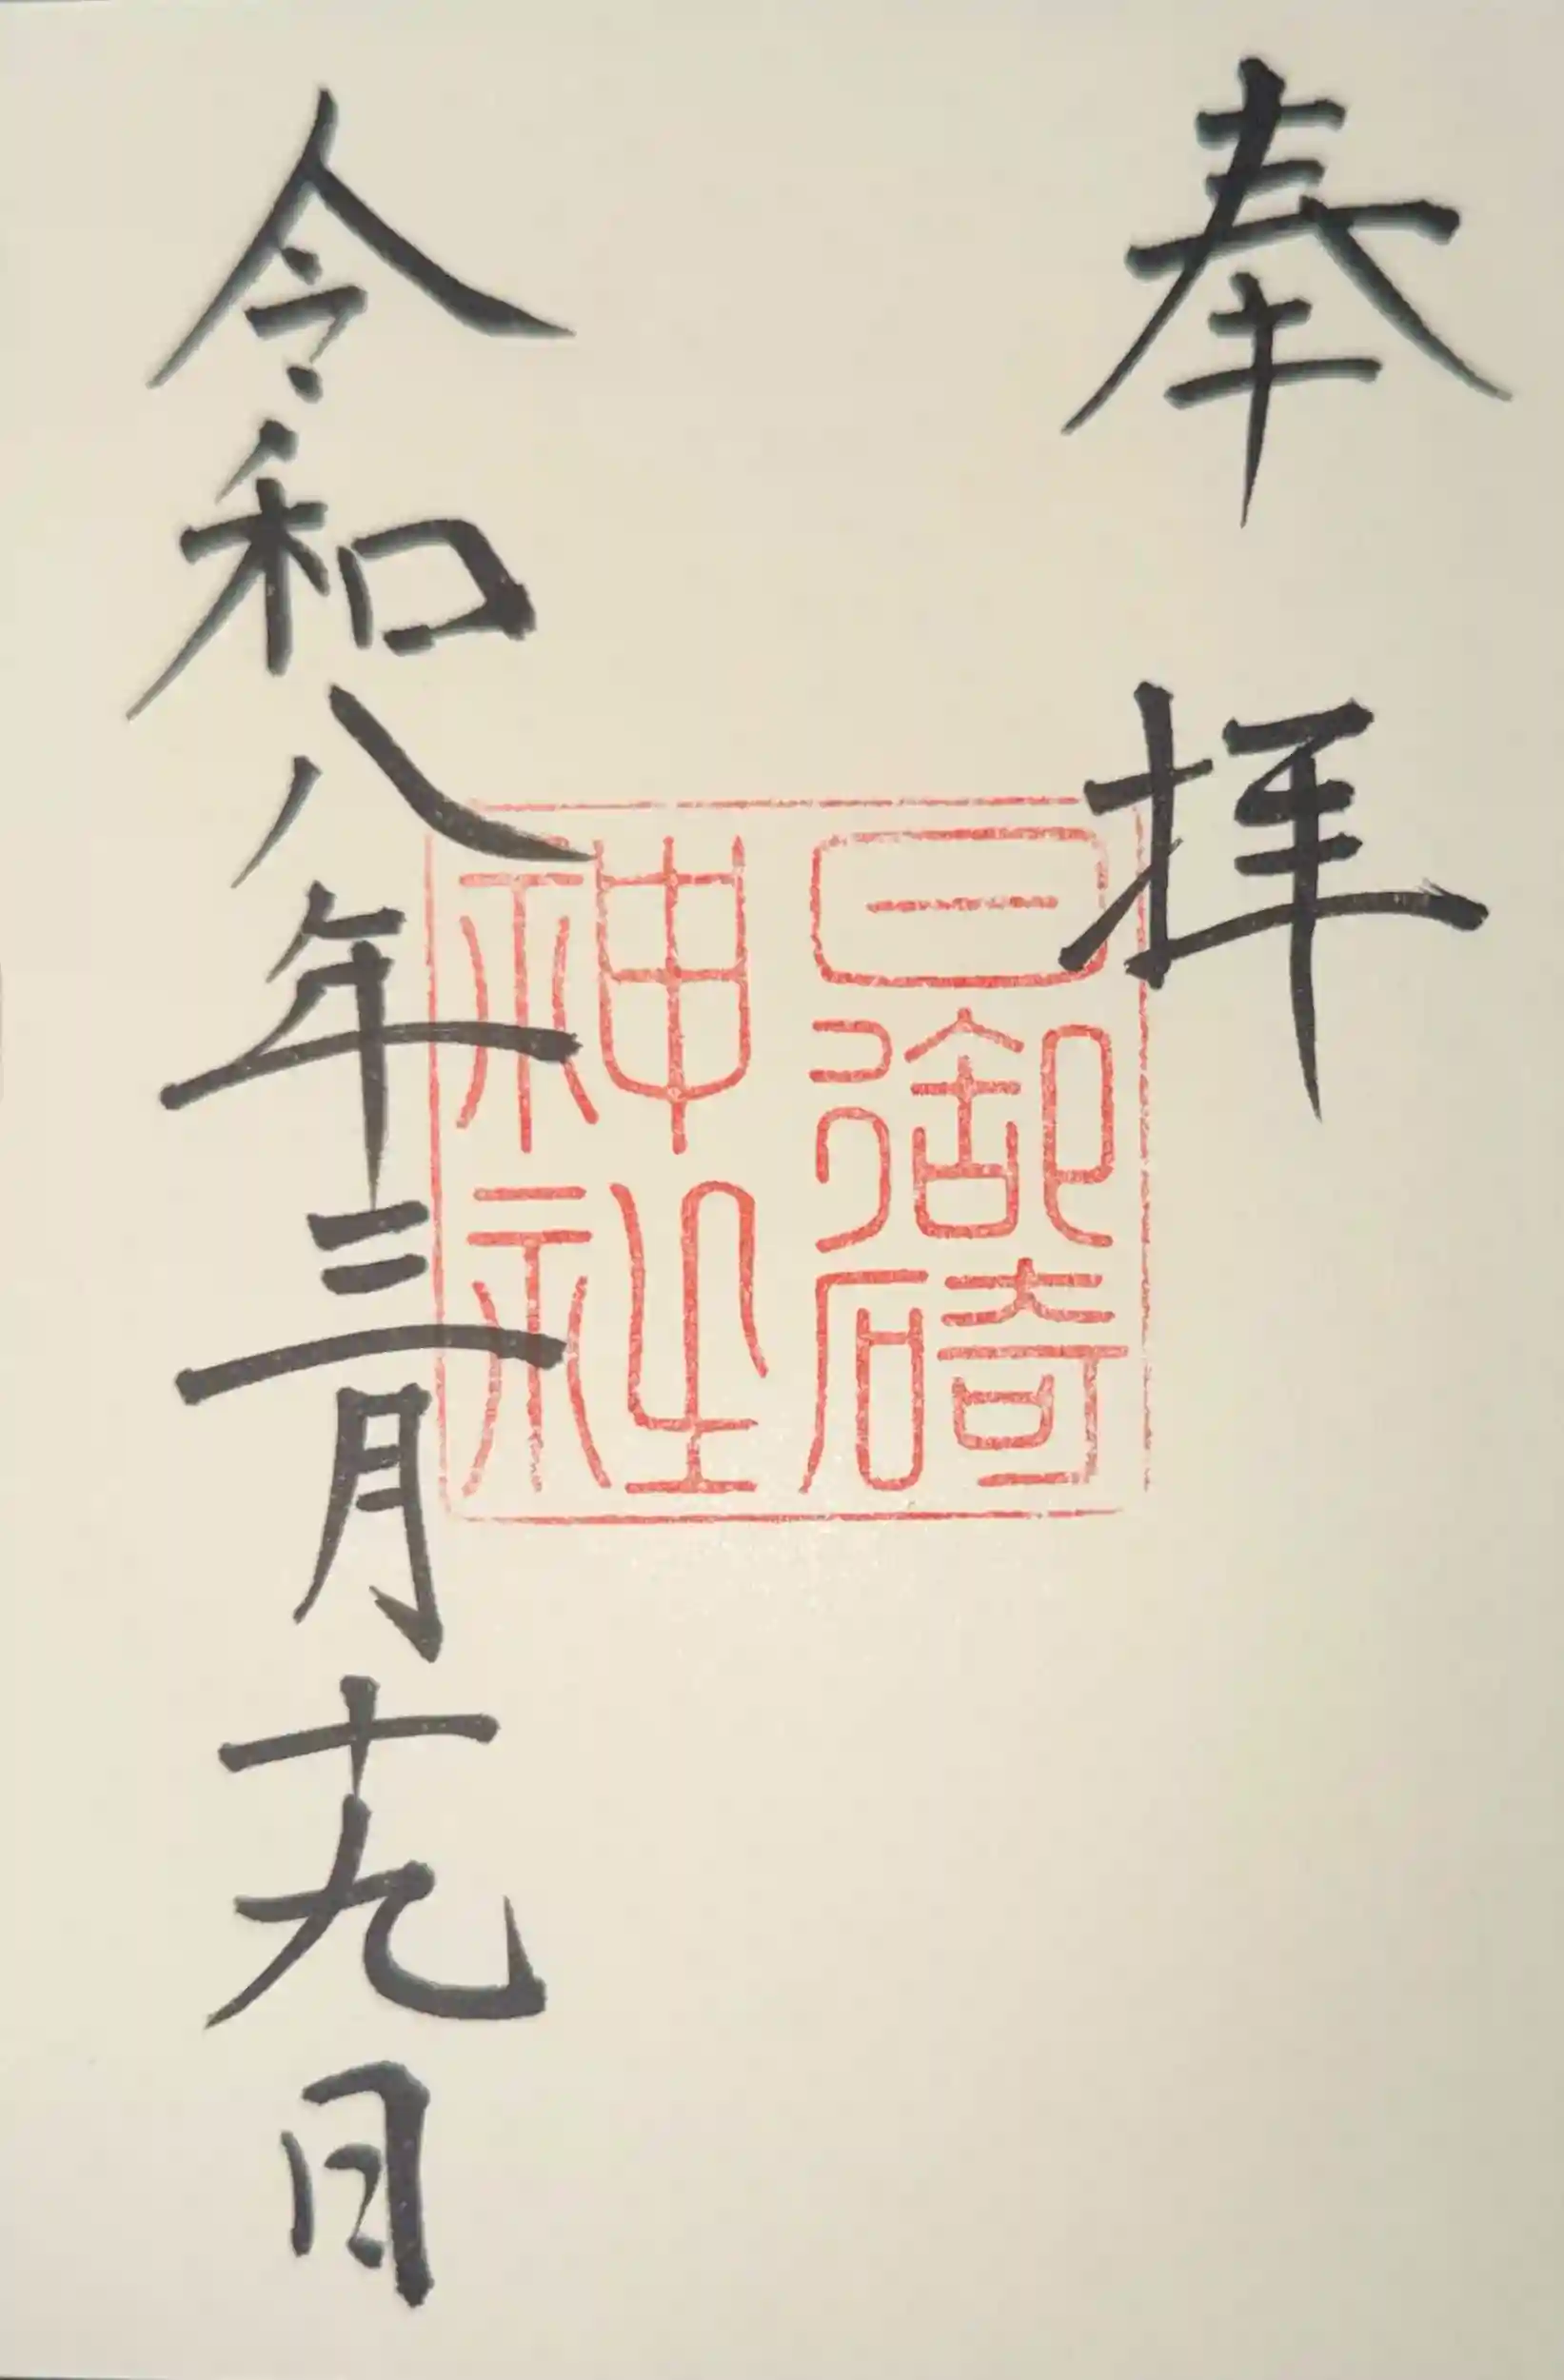 奉拝
日御碕
神社
令和八年三月十九日